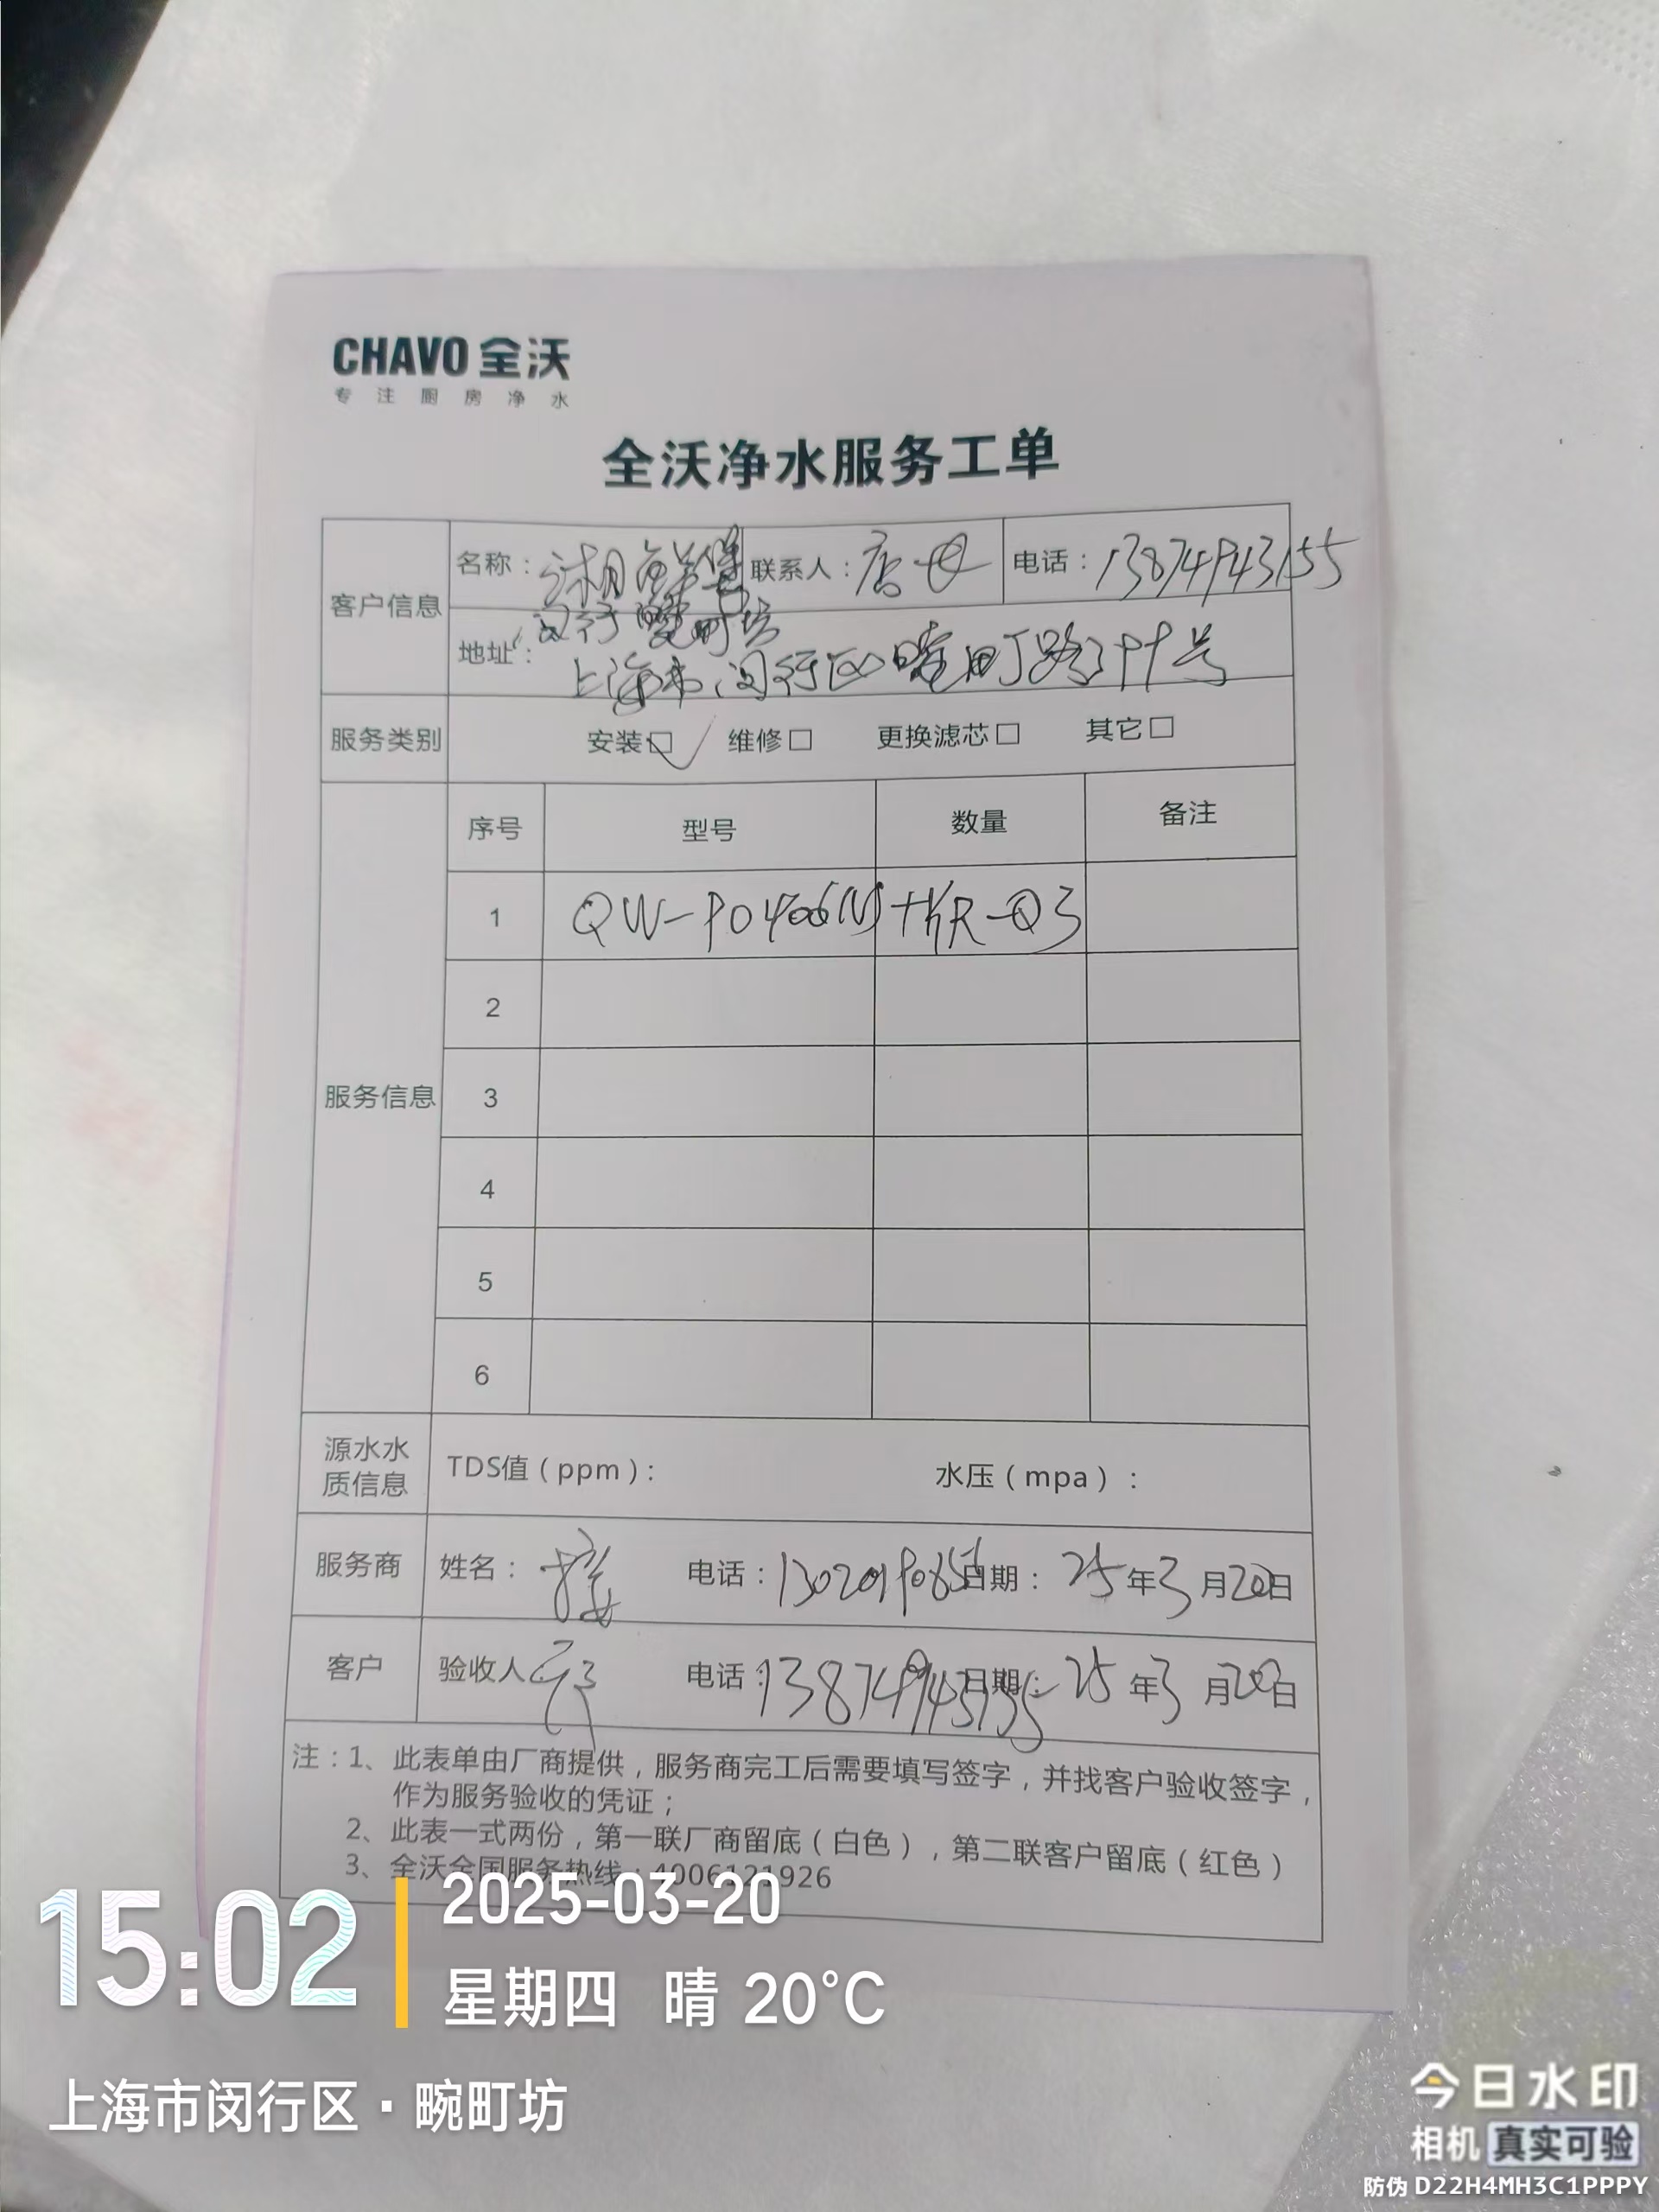 CHAVO 全沃
专注厨房净水
全沃净水服务工单
客户信息 名称： 联系人：店 电话：13874943155
闵行畹町坊
地址：上海市闵行区畹町路99号
服务类别 安装☑ 维修□ 更换滤芯□ 其它□
服务信息 序号 型号 数量 备注
1 QW-P0406(N)+KR-Q3
2
3
4
5
6
源水水质信息 TDS值（ppm）： 水压（mpa）：
服务商 姓名： 电话： 日期：25年3月20日
客户 验收人 电话：13874943155 日期：25年3月20日
注：1、此表单由厂商提供，服务商完工后需要填写签字，并找客户验收签字，
作为服务验收的凭证；
2、此表一式两份，第一联厂商留底（白色），第二联客户留底（红色）
3、全沃全国服务热线：4006121926
15:02
2025-03-20
星期四 晴 20°C
上海市闵行区·畹町坊
今日水印
相机 真实可验
防伪 D22H4MH3C1PPPY